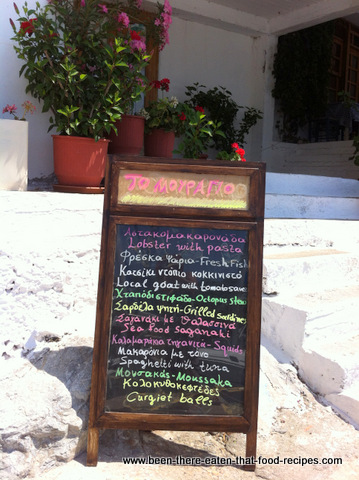 ΤΟ ΜΟΥΡΑΓΙΟ
Αστακομακαρονάδα
Lobster with pasta
Φρέσκα Ψάρια-Fresh Fish
Κατσίκι ντόπιο κοκκινιστό
Local goat with tomato sauce
Χταπόδι στιφάδο-Octopus stew
Σαρδέλα ψητή-Grilled Sardines
Σαγανάκι με θαλασσινά
Sea Food Saganaki
Καλαμαράκια τηγανιτά-Squids
Μακαρόνια με τόνο
Spaghetti with tuna
Μουσακάς-Moussaka
Κολοκυθοκεφτέδες
Curgiet balls
www.been-there-eaten-that-food-recipes.com